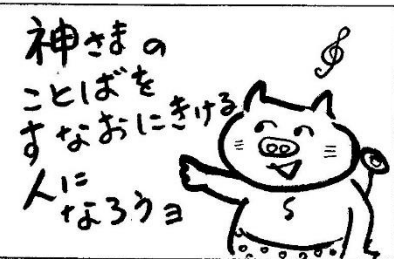 神さまの
ことばを
すなおにきける
人に
なろうヨ